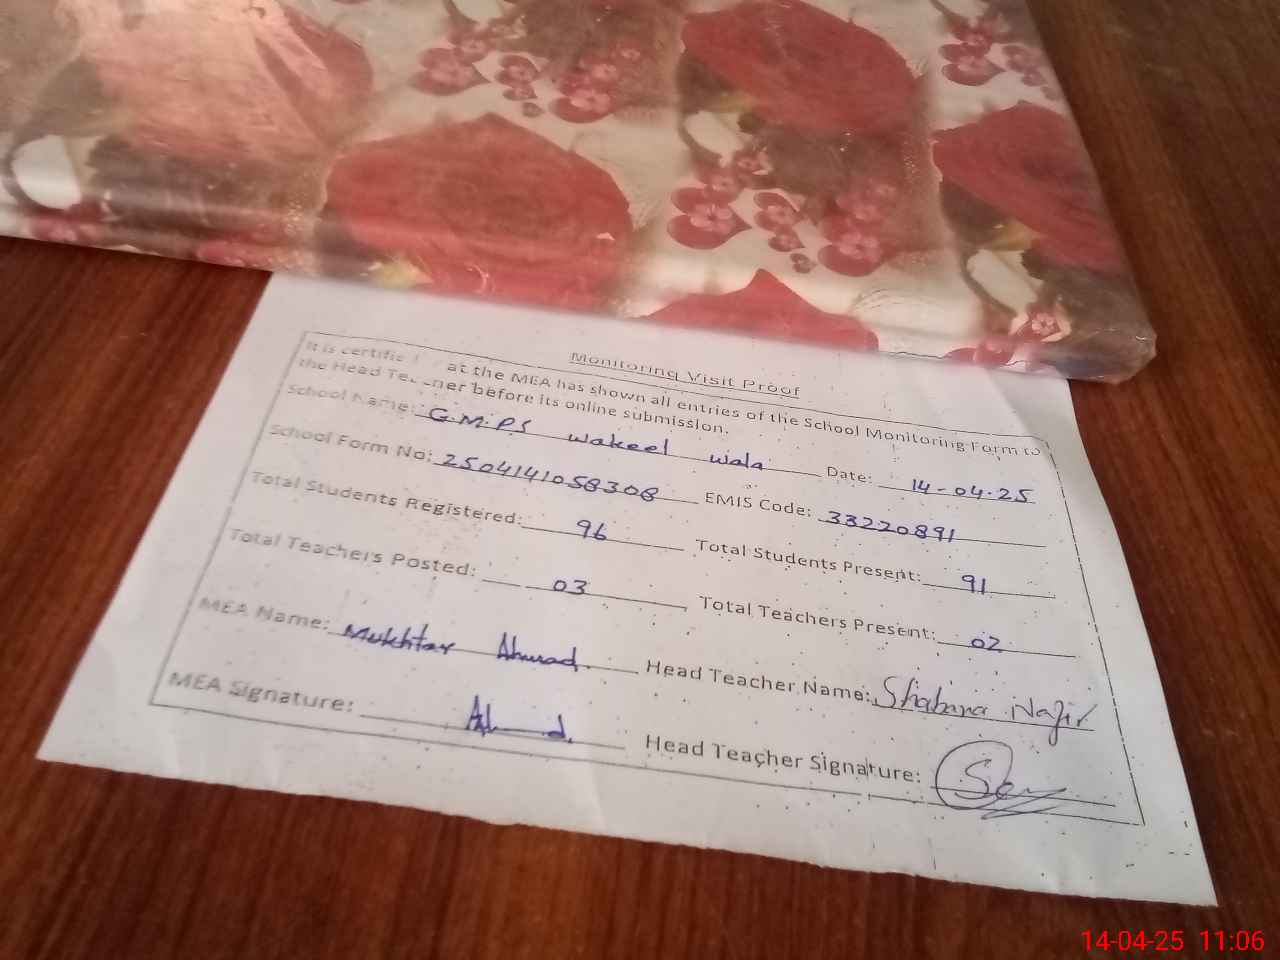 Monitoring Visit Proof
It is certifie at the MEA has shown all entries of the School Monitoring Form to
the Head Te ner before its online submission.
School Name: G.M.P.S Wakeel Wala Date: 14-04-25
School Form No: 2504141058308 EMIS Code: 33220891
Total Students Registered: 96 Total Students Present: 91
Total Teachers Posted: 03 Total Teachers Present: 02
MEA Name: Mukhtar Ahmad. Head Teacher Name: Shabana Nazir
MEA Signature: Head Teacher Signature:
14-04-25 11:06